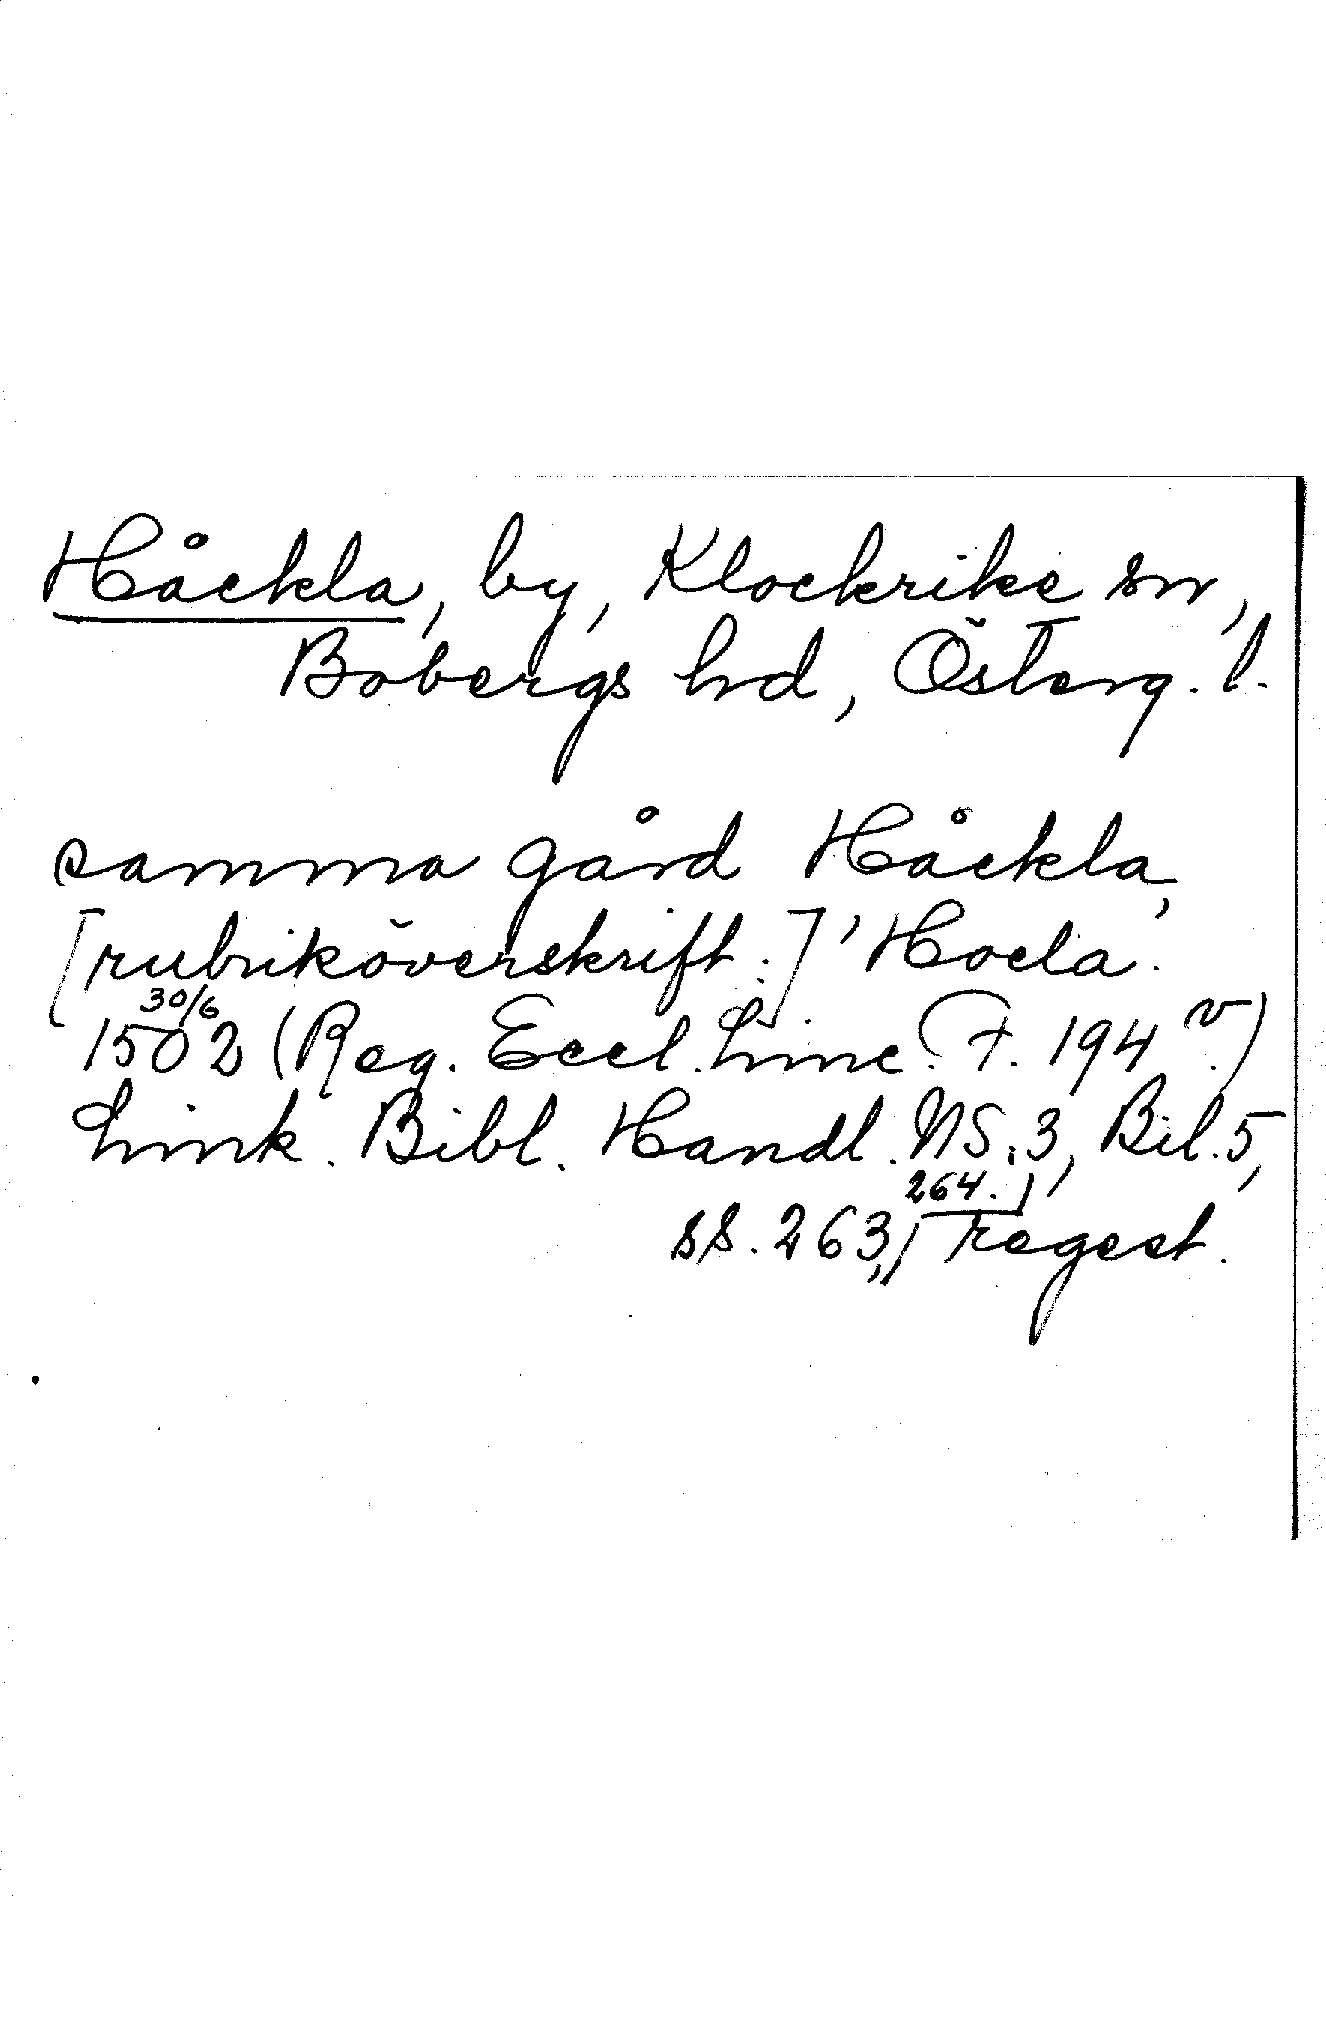 Håckla, by, Klockrike sn,
Bobergs hd, Österg. l.
samma gård Håckla,
[rubriköverskrift.] 'Hocla'.
1502 30/6 (Reg. Eccl. Linc. F. 194 v.)
Link. Bibl. Handl. NS. 3, Bil. 5,
ss. 263, 264. regest.